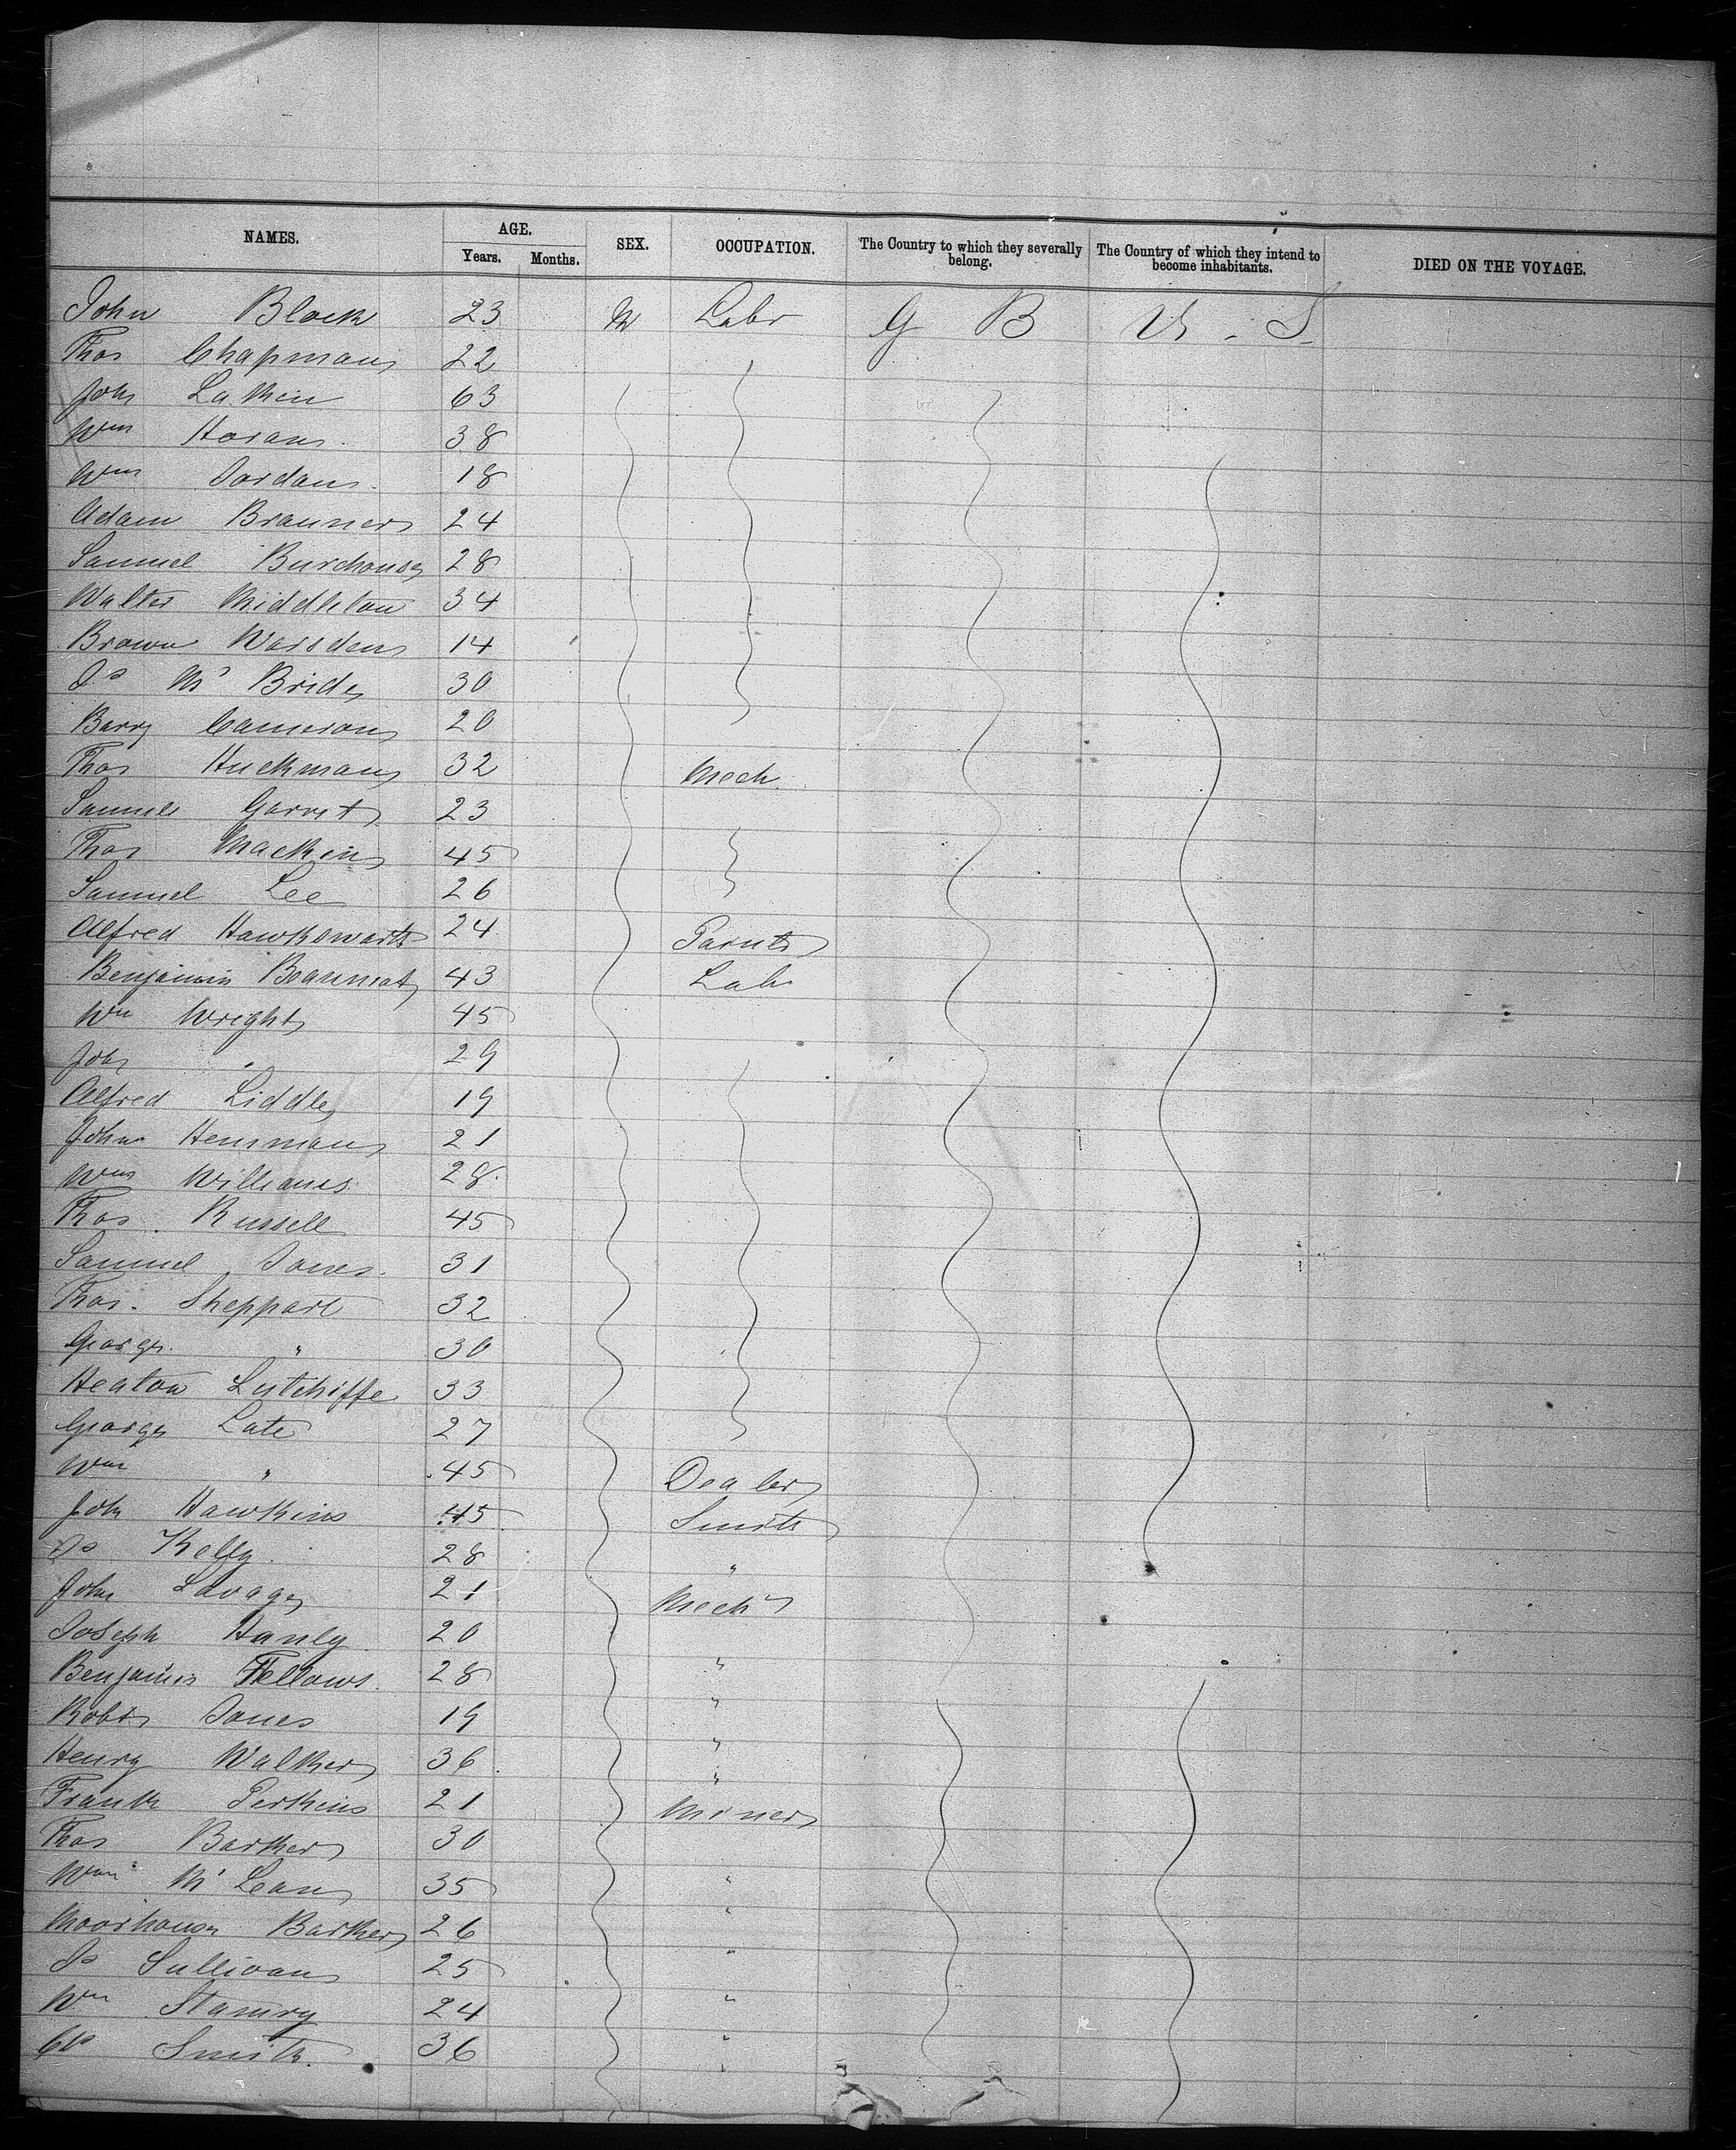 NAMES. AGE. SEX. OCCUPATION. The Country to which they severally belong. The Country of which they intend to become inhabitants. DIED ON THE VOYAGE.
Years. Months.
John Black 23 M Labr G B U. S.
Thos Chapman 22
John Lakin 63
Wm Horan 38
Wm Jordan 18
Adam Branner 24
Samuel Burchouse 28
Walter Middleton 34
Brown Warsden 14
Js Mc Bride 30
Barry Cameron 20
Thos Huckman 32 Mech
Samuel Garret 23
Thos Mackin 45
Samuel Lee 26
Alfred Hawksworth 24 Paintr
Benjamin Beaumont 43 Labr
Wm Wright 45
John " 29
Alfred Liddle 19
John Henman 21
Wm Williams 28
Thos Russell 45
Samuel Jones 31
Thos. Sheppart 32
George " 30
Heaton Lutchiffe 33
George Late 27
Wm " 45 Dealer
John Hawkins 45 Smith
Js Kelly 28 "
John Savage 21 Mech
Joseph Hanly 20 "
Benjamin Fellows 28 "
Robt Jones 19 "
Henry Walker 36 "
Frank Perkins 21 Miner
Thos Barker 30
Wm Mc Lean 35 "
Moorhouse Barker 26 "
Js Sullivan 25 "
Wm 24 "
Smith 36 "